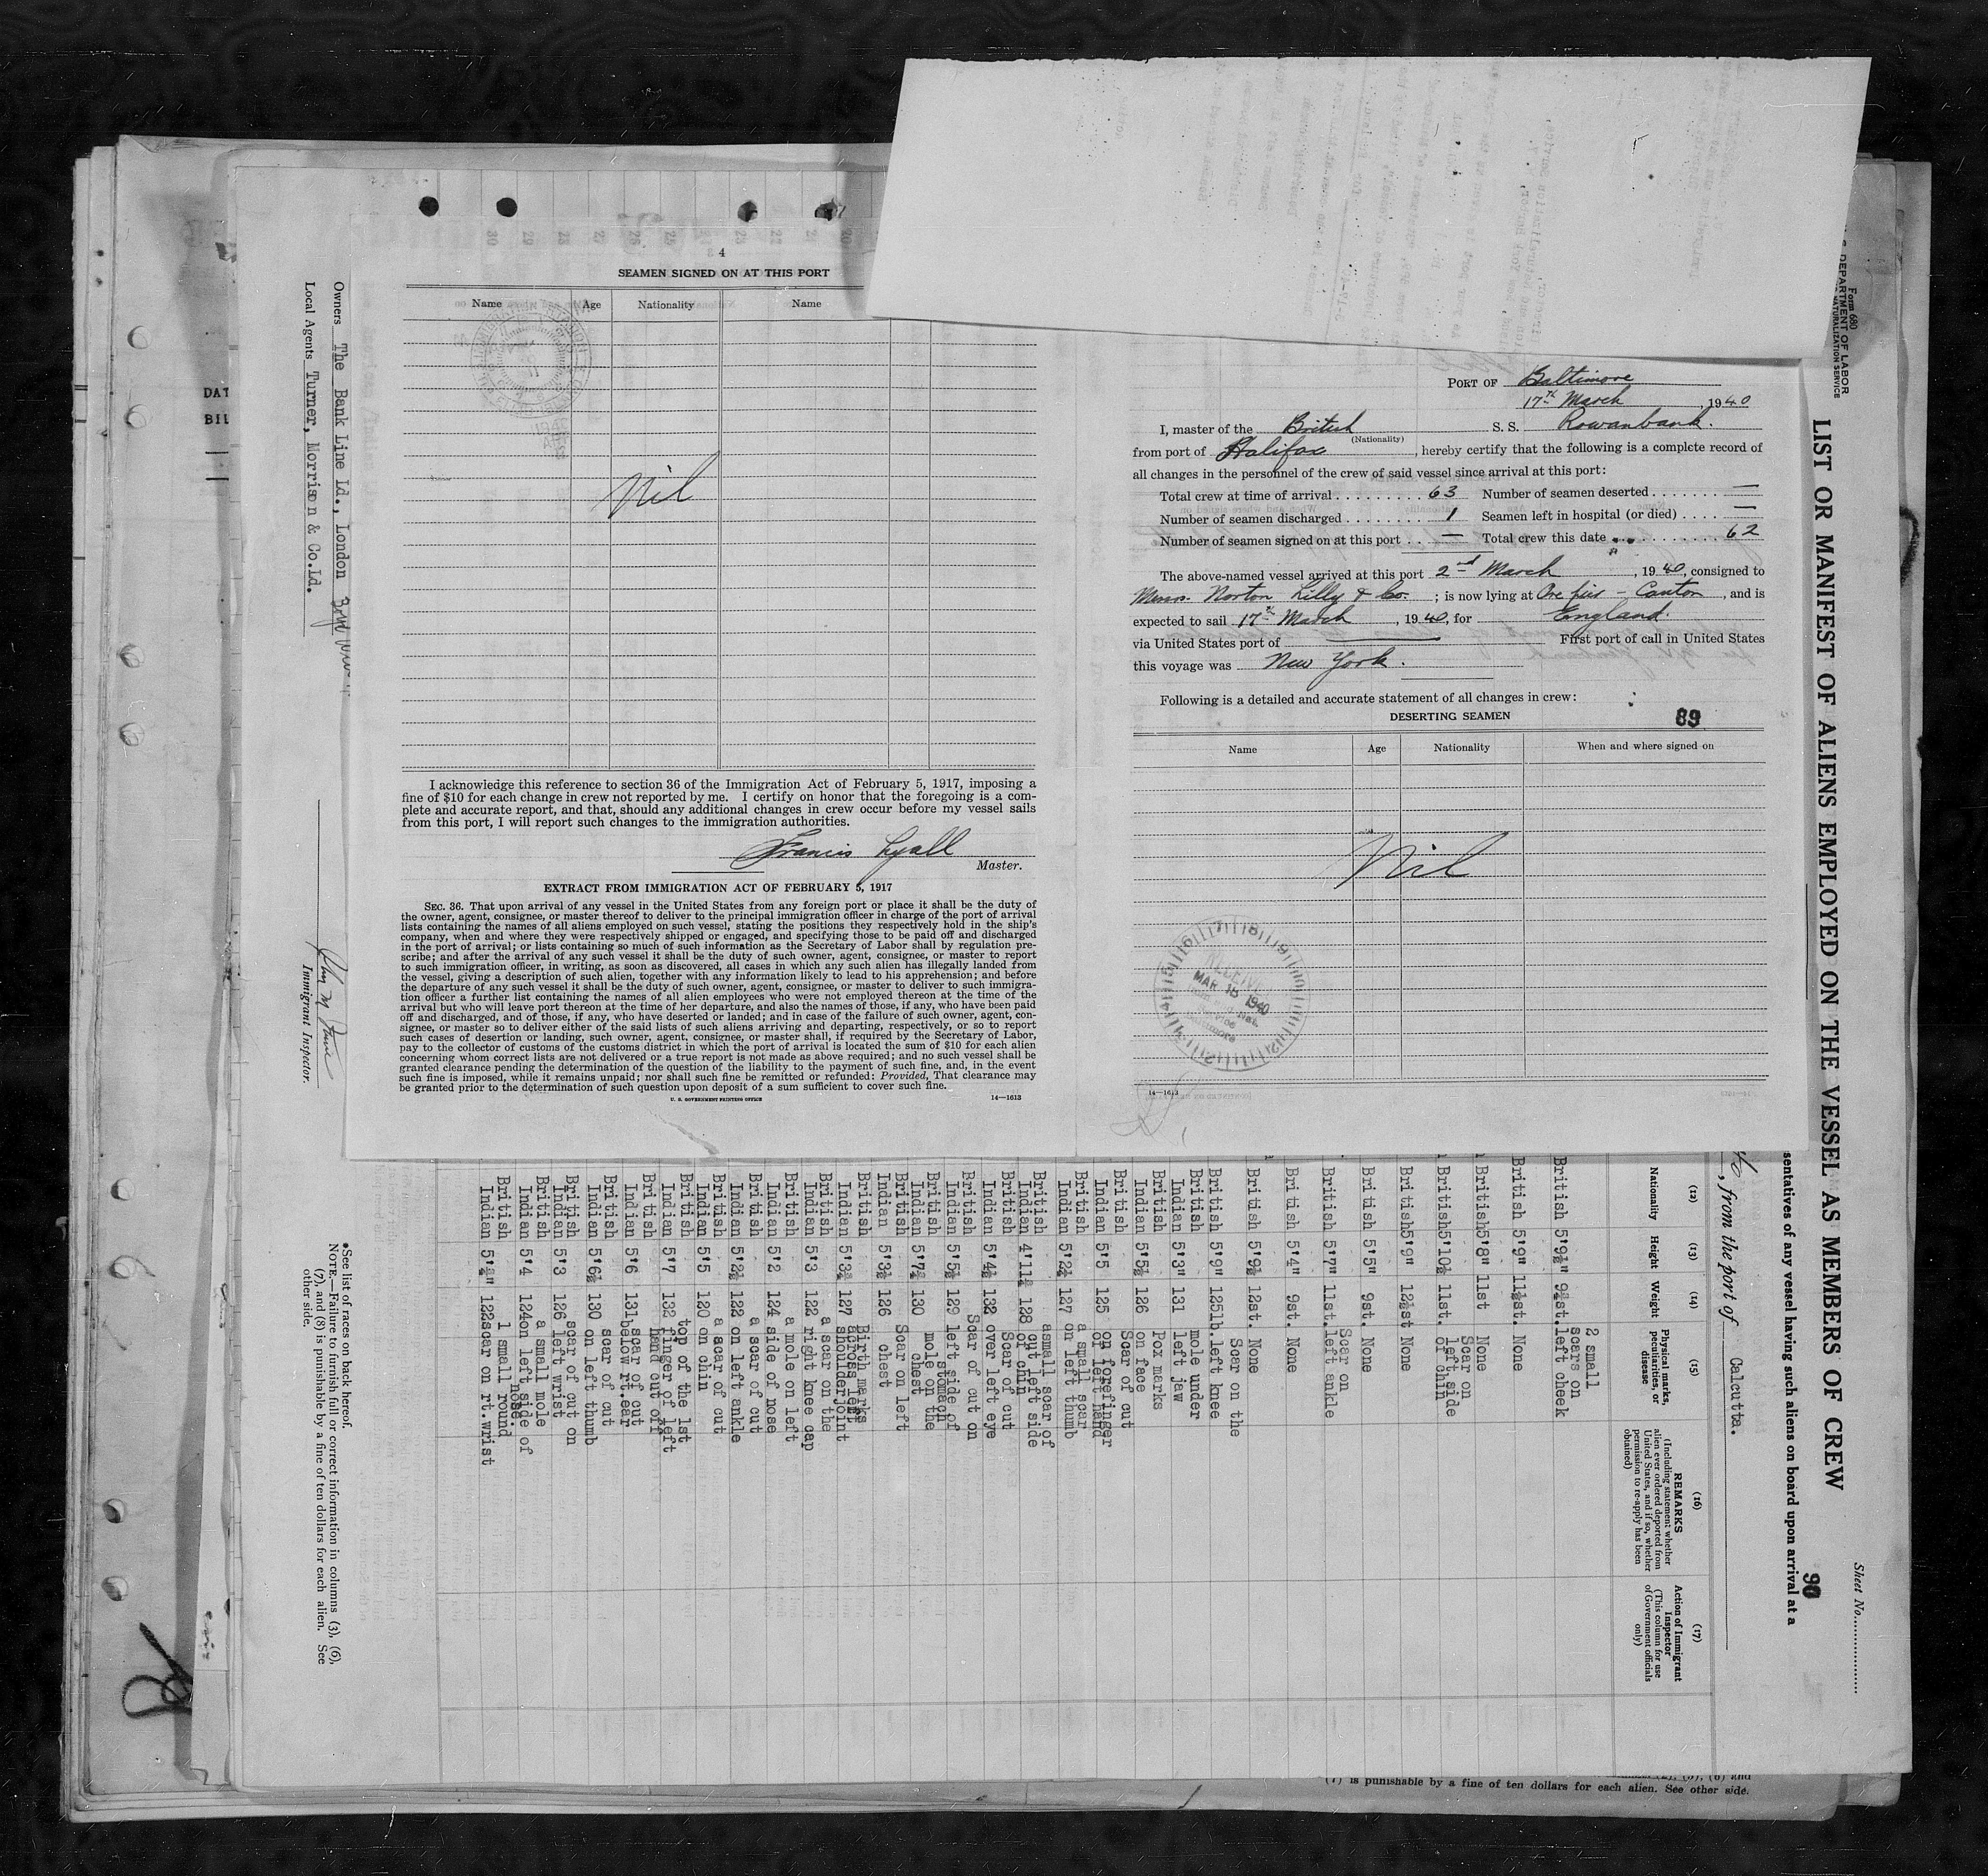 4
SEAMEN SIGNED ON AT THIS PORT
Name Age Nationality Name
Nil
I acknowledge this reference to section 36 of the Immigration Act of February 5, 1917, imposing a
fine of $10 for each change in crew not reported by me. I certify on honor that the foregoing is a com-
plete and accurate report, and that, should any additional changes in crew occur before my vessel sails
from this port, I will report such changes to the immigration authorities.
Francis Lyall
Master.
EXTRACT FROM IMMIGRATION ACT OF FEBRUARY 5, 1917
SEC. 36. That upon arrival of any vessel in the United States from any foreign port or place it shall be the duty of
the owner, agent, consignee, or master thereof to deliver to the principal immigration officer in charge of the port of arrival
lists containing the names of all aliens employed on such vessel, stating the positions they respectively hold in the ship's
company, when and where they were respectively shipped or engaged, and specifying those to be paid off and discharged
in the port of arrival; or lists containing so much of such information as the Secretary of Labor shall by regulation pre-
scribe; and after the arrival of any such vessel it shall be the duty of such owner, agent, consignee, or master to report
to such immigration officer, in writing, as soon as discovered, all cases in which any such alien has illegally landed from
the vessel, giving a description of such alien, together with any information likely to lead to his apprehension; and before
the departure of any such vessel it shall be the duty of such owner, agent, consignee, or master to deliver to such immigra-
tion officer a further list containing the names of all alien employees who were not employed thereon at the time of the
arrival but who will leave port thereon at the time of her departure, and also the names of those, if any, who have been paid
off and discharged, and of those, if any, who have deserted or landed; and in case of the failure of such owner, agent, con-
signee, or master so to deliver either of the said lists of such aliens arriving and departing, respectively, or so to report
such cases of desertion or landing, such owner, agent, consignee, or master shall, if required by the Secretary of Labor,
pay to the collector of customs of the customs district in which the port of arrival is located the sum of $10 for each alien
concerning whom correct lists are not delivered or a true report is not made as above required; and no such vessel shall be
granted clearance pending the determination of the question of the liability to the payment of such fine, and, in the event
such fine is imposed, while it remains unpaid; nor shall such fine be remitted or refunded: Provided, That clearance may
be granted prior to the determination of such question upon deposit of a sum sufficient to cover such fine.
U. S. GOVERNMENT PRINTING OFFICE 14—1613
PORT OF Baltimore
17th March, 1940
I, master of the British S. S. Rowanbank.
(Nationality)
from port of Halifax, hereby certify that the following is a complete record of
all changes in the personnel of the crew of said vessel since arrival at this port:
Total crew at time of arrival . . . . . . . . . 63 Number of seamen deserted . . . . . . . —
Number of seamen discharged . . . . . . . . 1 Seamen left in hospital (or died) . . . . —
Number of seamen signed on at this port . . — Total crew this date . . . . . . . . . . . 62
The above-named vessel arrived at this port 2nd March, 1940, consigned to
Messrs. Norton Lilly & Co. ; is now lying at Ore pier - Canton, and is
expected to sail 17th March, 1940, for England.
via United States port of First port of call in United States
this voyage was New York.
Following is a detailed and accurate statement of all changes in crew:
DESERTING SEAMEN 89
Name Age Nationality When and where signed on
Nil
MAR 18 1940
14—1613
Form 680
DEPARTMENT OF LABOR
NATURALIZATION SERVICE
LIST OR MANIFEST OF ALIENS EMPLOYED ON THE VESSEL AS MEMBERS OF CREW
Sheet No.
90
sentatives of any vessel having such aliens on board upon arrival at a
, from the port of Calcutta.
(12) (13) (14) (15) (16) (17)
Nationality Height Weight
Physical marks, peculiarities, or disease
REMARKS
(Including statement whether
alien ever ordered deported from
United States, and if so, whether
permission to re-apply has been
obtained)
Action of Immigrant
Inspector
(This column for use
of Government officials
only)
British 5'9½" 9½st. 2 small scars on left cheek
British 5'9" 11½st. None
British 5'8" 11st None
British 5'10½ 11st. Scar on left side of chin
British 5'9" 12½st None
British 5'5" 9st. None
British 5'7" 11st. Scar on left ankle
British 5'4" 9st. None
British 5'9½ 12st. None
British 5'9" 125lb. Scar on the left knee
British Indian 5'3" 131 mole under left jaw
British Indian 5'5½ 126 Pox marks on face
British Indian 5'5 125 Scar of cut on forefinger of left hand
British Indian 5'2½ 127 a small scar on left thumb
British Indian 4'11½ 128 asmall scar of cut left side of chin
British Indian 5'4½ 132 Scar of cut over left eye
British Indian 5'5½ 129 Scar of cut on left side of stomach
British Indian 5'7½ 130 mole on the chest
British Indian 5'3½ 126 Scar on left chest
British Indian 5'3½ 127 Birth marks across left shoulderjoint
British Indian 5'3 122 a scar on the right knee cap
British Indian 5'2 124 a mole on left side of nose
British Indian 5'2½ 122 a scar of cut on left ankle
British Indian 5'5 120 a scar of cut on chin
British Indian 5'7 132 top of the 1st finger of left hand cut off
British Indian 5'6 131 scar of cut below rt.ear
British Indian 5'6½ 130 scar of cut on left thumb
British Indian 5'3 126 scar of cut on left wrist
British Indian 5'4 124 a small mole on left side of nose.
British Indian 122 1 small round scar on rt.wrist
Owners The Bank Line Ld., London
Local Agents Turner, Morrison & Co.Ld.
Immigrant Inspector.
*See list of races on back hereof.
NOTE.—Failure to furnish full or correct information in columns (3), (6),
(7), and (8) is punishable by a fine of ten dollars for each alien. See
other side.
DAT
BIL
(7) is punishable by a fine of ten dollars for each alien. See other side.